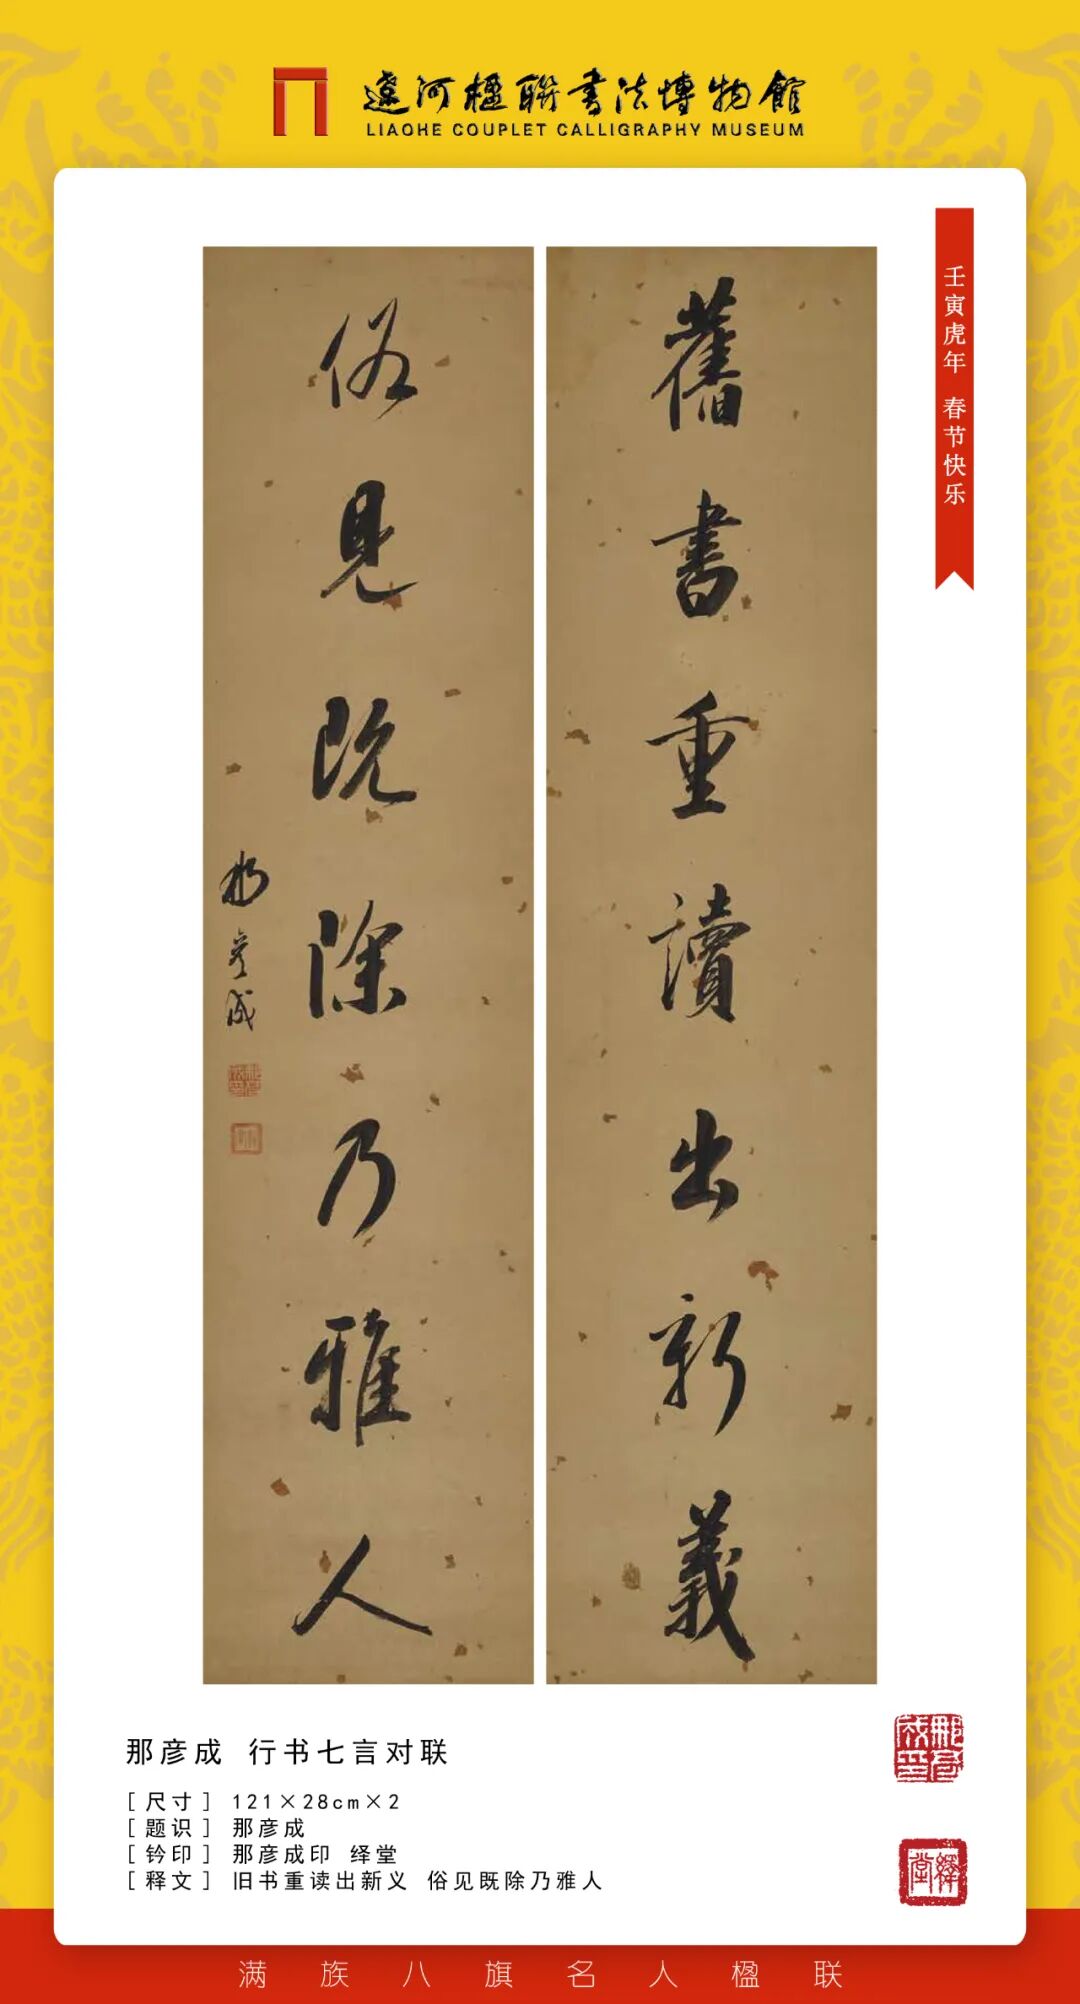 遼河楹聯書法博物館
LIAOHE COUPLET CALLIGRAPHY MUSEUM
壬寅虎年 春节快乐
舊書重讀出新義
俗見既除乃雅人
那彦成
那彦成 行书七言对联
[尺寸] 121×28cm×2
[题识] 那彦成
[钤印] 那彦成印 绎堂
[释文] 旧书重读出新义 俗见既除乃雅人
那彦成印
繹堂
满族八旗名人楹联